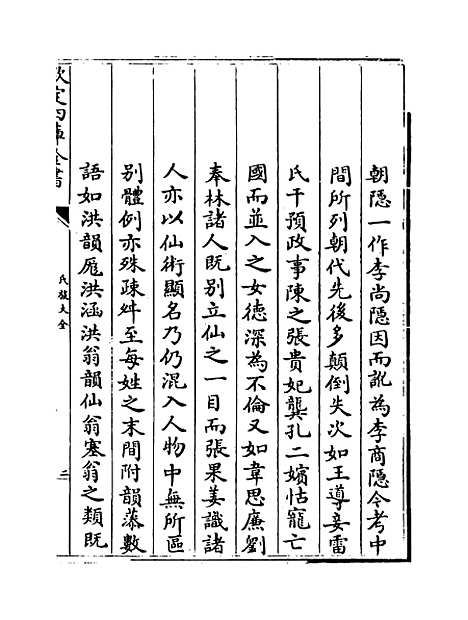 朝隱一作李尚隱因而訛為李商隱今考中
間所列朝代先後多顛倒失次如王導妾雷
氏干預政事陳之張貴妃龔孔二嬪怙寵亡
國而並入之女德深為不倫又如韋思廉劉
奉林諸人既别立仙之一目而張果姜識諸
人亦以仙術顯名乃仍混入人物中無所區
别體例亦殊疎舛至每姓之末間附韻藻數
語如洪韻龐洪涵洪翁韻仙翁塞翁之類既
欽定四庫全書
氏族大全
二